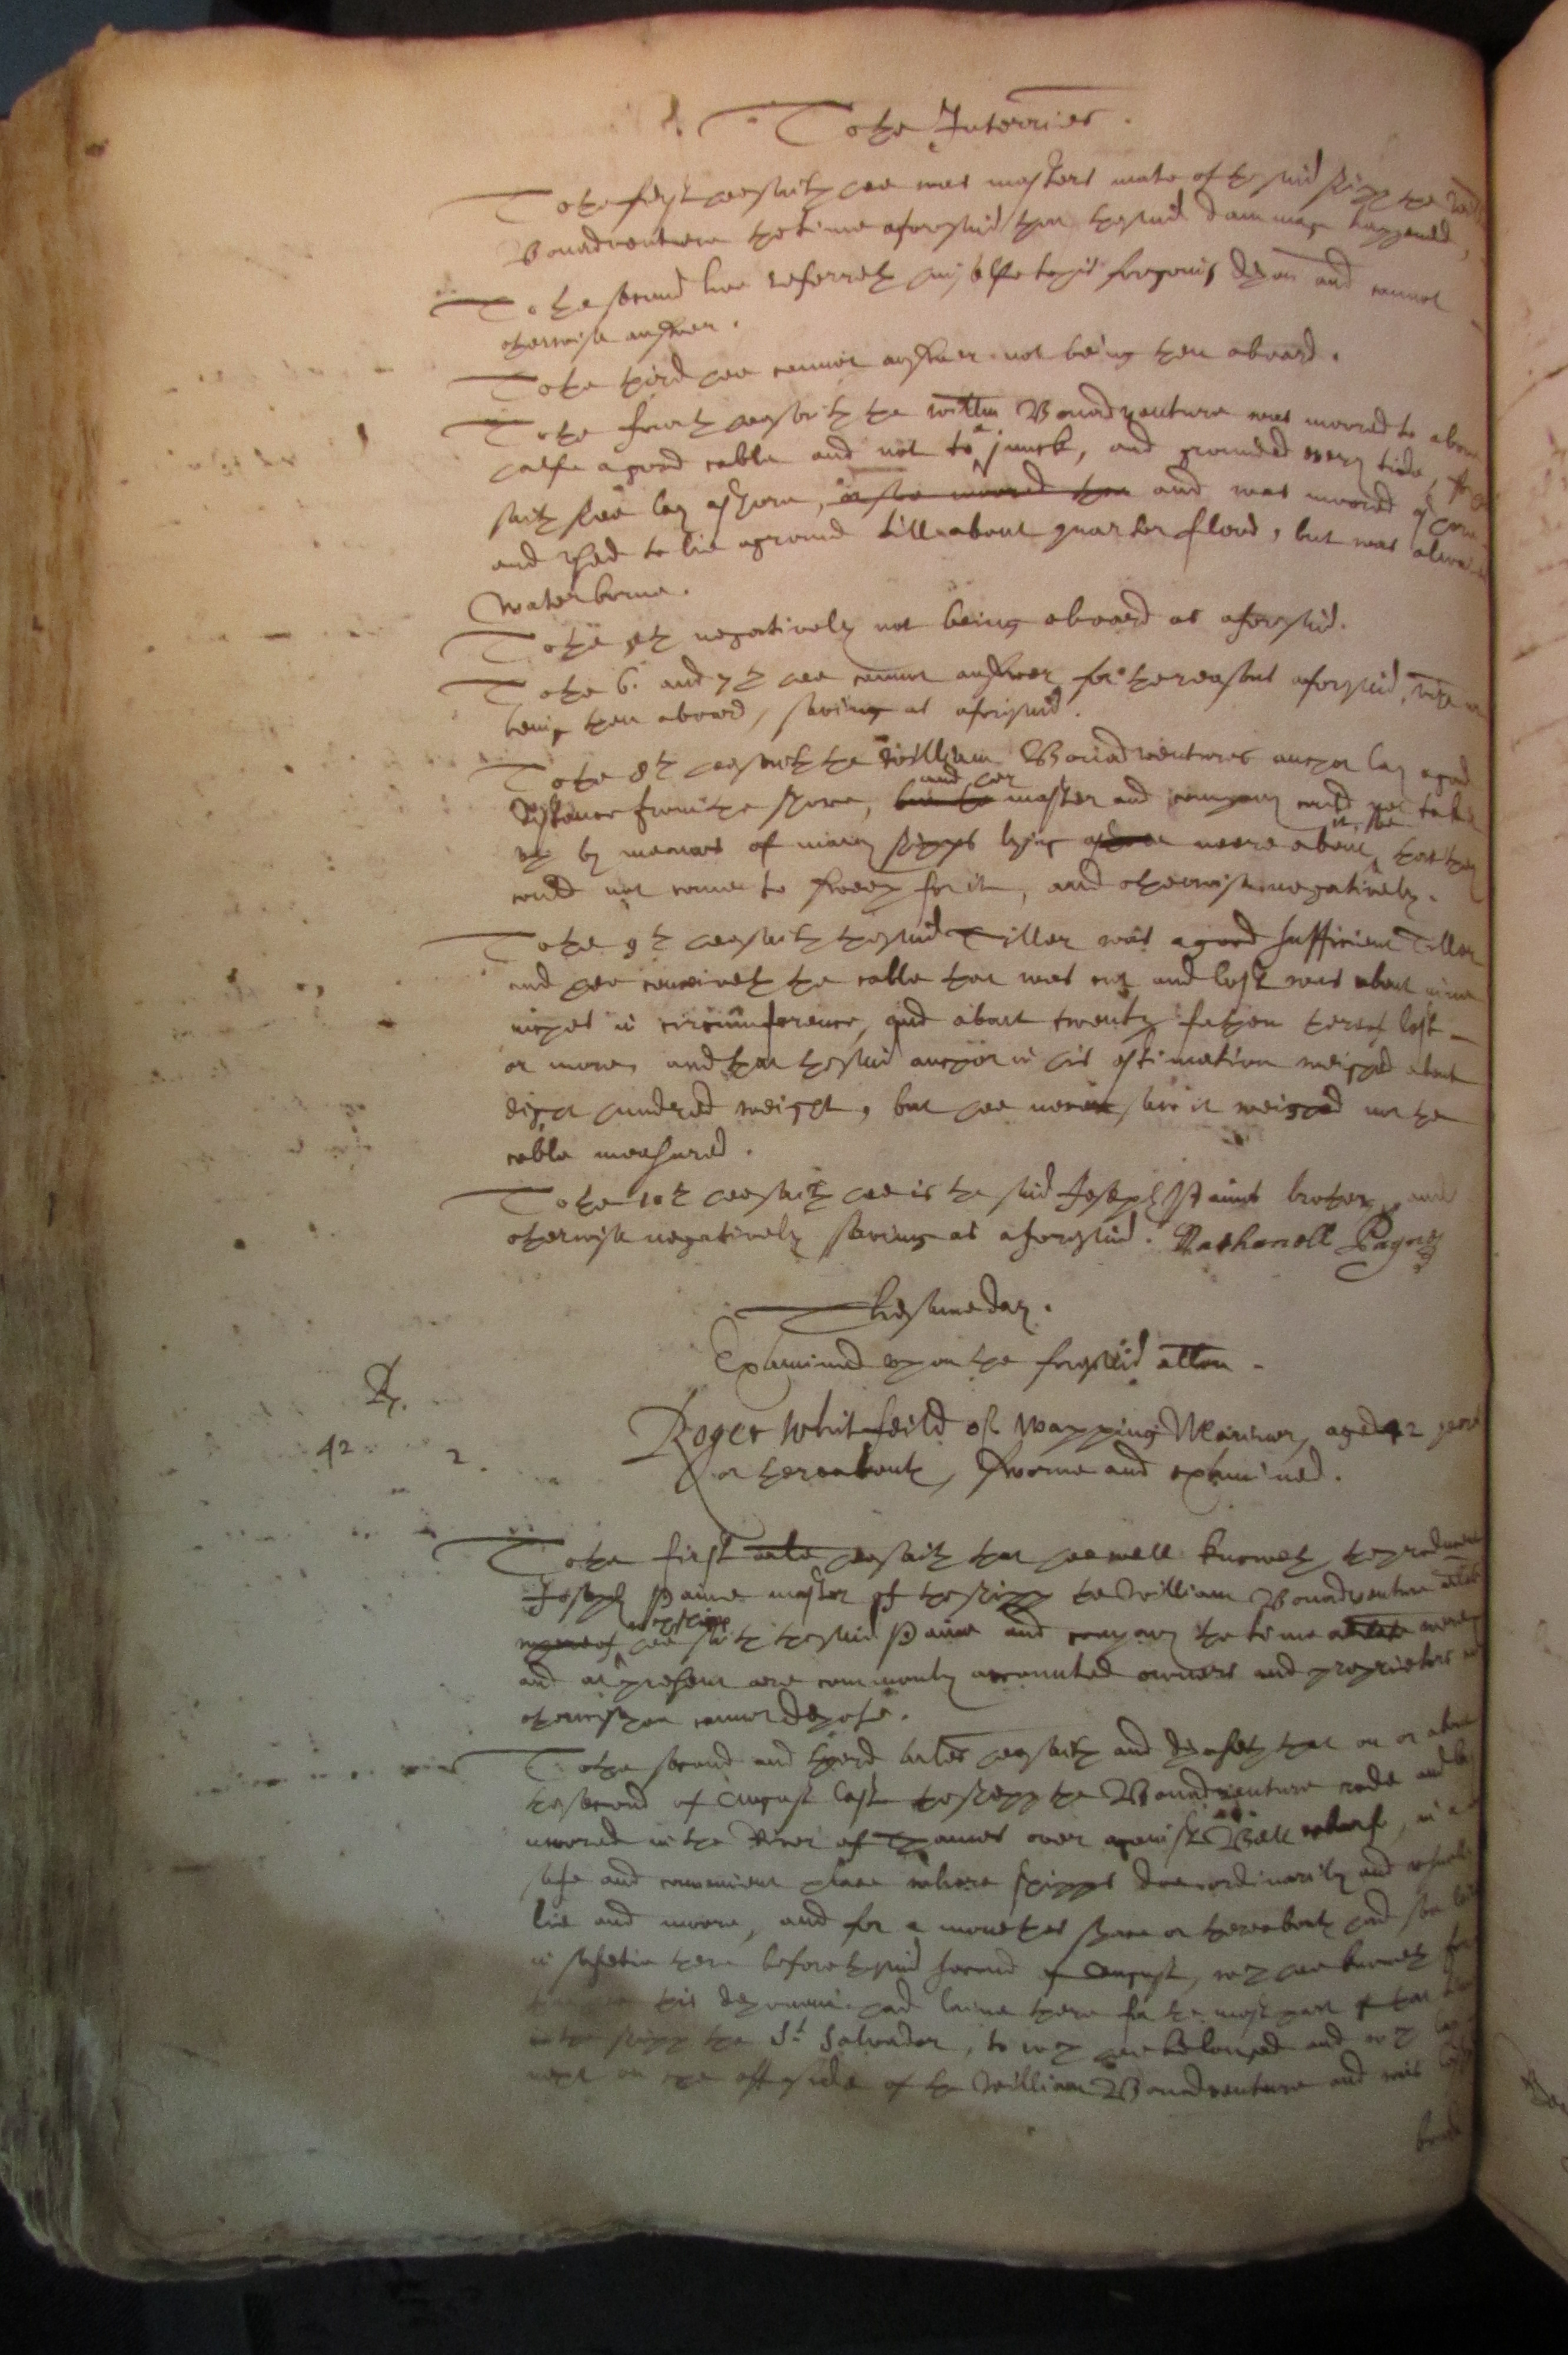 To the Interries.
To the first hee saith hee was masters mate of the said shipp the
Bonadventure the time aforesaid that the said dammage happened,
To the second hee referreth himselfe to his foregoeing depon and cannot
otherwise answer.
To the third hee cannot answer not being then aboard.
To the fourth hee saith the Willm Bonadventure was moored to about
halfe a good cable and not to a junck, and grounded every tide,
saith shee lay ashore, and was moored
and used to lie aground till about quarter flood, but was
waterborne.
To the 5th negatively not being aboard as aforesaid.
To the 6. and 7th hee cannot answer for the reasons aforesaid,
being then aboard, saving as aforesaid.
To the 8th hee saith the William Bonadventures anchor lay a good
distance from the shore, and her master and company could not take
up by meanes of many shipps lying neere about it, soe that they
could not come to sweep for it, and otherwise negatively.
To the 9th hee saith the said Tiller was a good sufficient Tiller
and hee conceiveth the cable that was cut and lost was about nine
inches in circumference, and about twenty fathom thereof lost
or more, and that the said anchor in his estimation weighed about
eight hundred weight, but hee never saw it weighed nor the
cable measured.
To the 10th hee saith hee is the said Joseph Paines brother, and
otherwise negatively saving as aforesaid. Nathanell Payne
The same day.
Examined upon the foresaid allon.
Rp.
42 2.
Roger Whitfeild of Wapping Mariner, aged 42 yeares
or thereabouts, sworne and examined.
To the first arle hee saith that hee well knoweth the producent
Joseph Paine master of the shipp the William Bonadventure arlate
of which shipp hee saith the said Paine and company the time arlate were
and at present are commonly accounted owners and proprietors and
otherwise hee cannot depose.
To the second and third arles hee saith and deposeth that on or about
the second of August last the shipp the Bonadventure rode and lay
moored in the River of Thames over against Bell wharfe, in a
safe and convenient place where shipps doe ordinarily and usually
lie and moore, and for a moneths space or thereabouts had soe laine
in safetie there before the said second of August, wch hee knoweth for
this deponent had laine there for the most part of that time
in the shipp the St. Salvador, to wch hee belonged and wch lay
next on the off side of the William Bonadventure and was